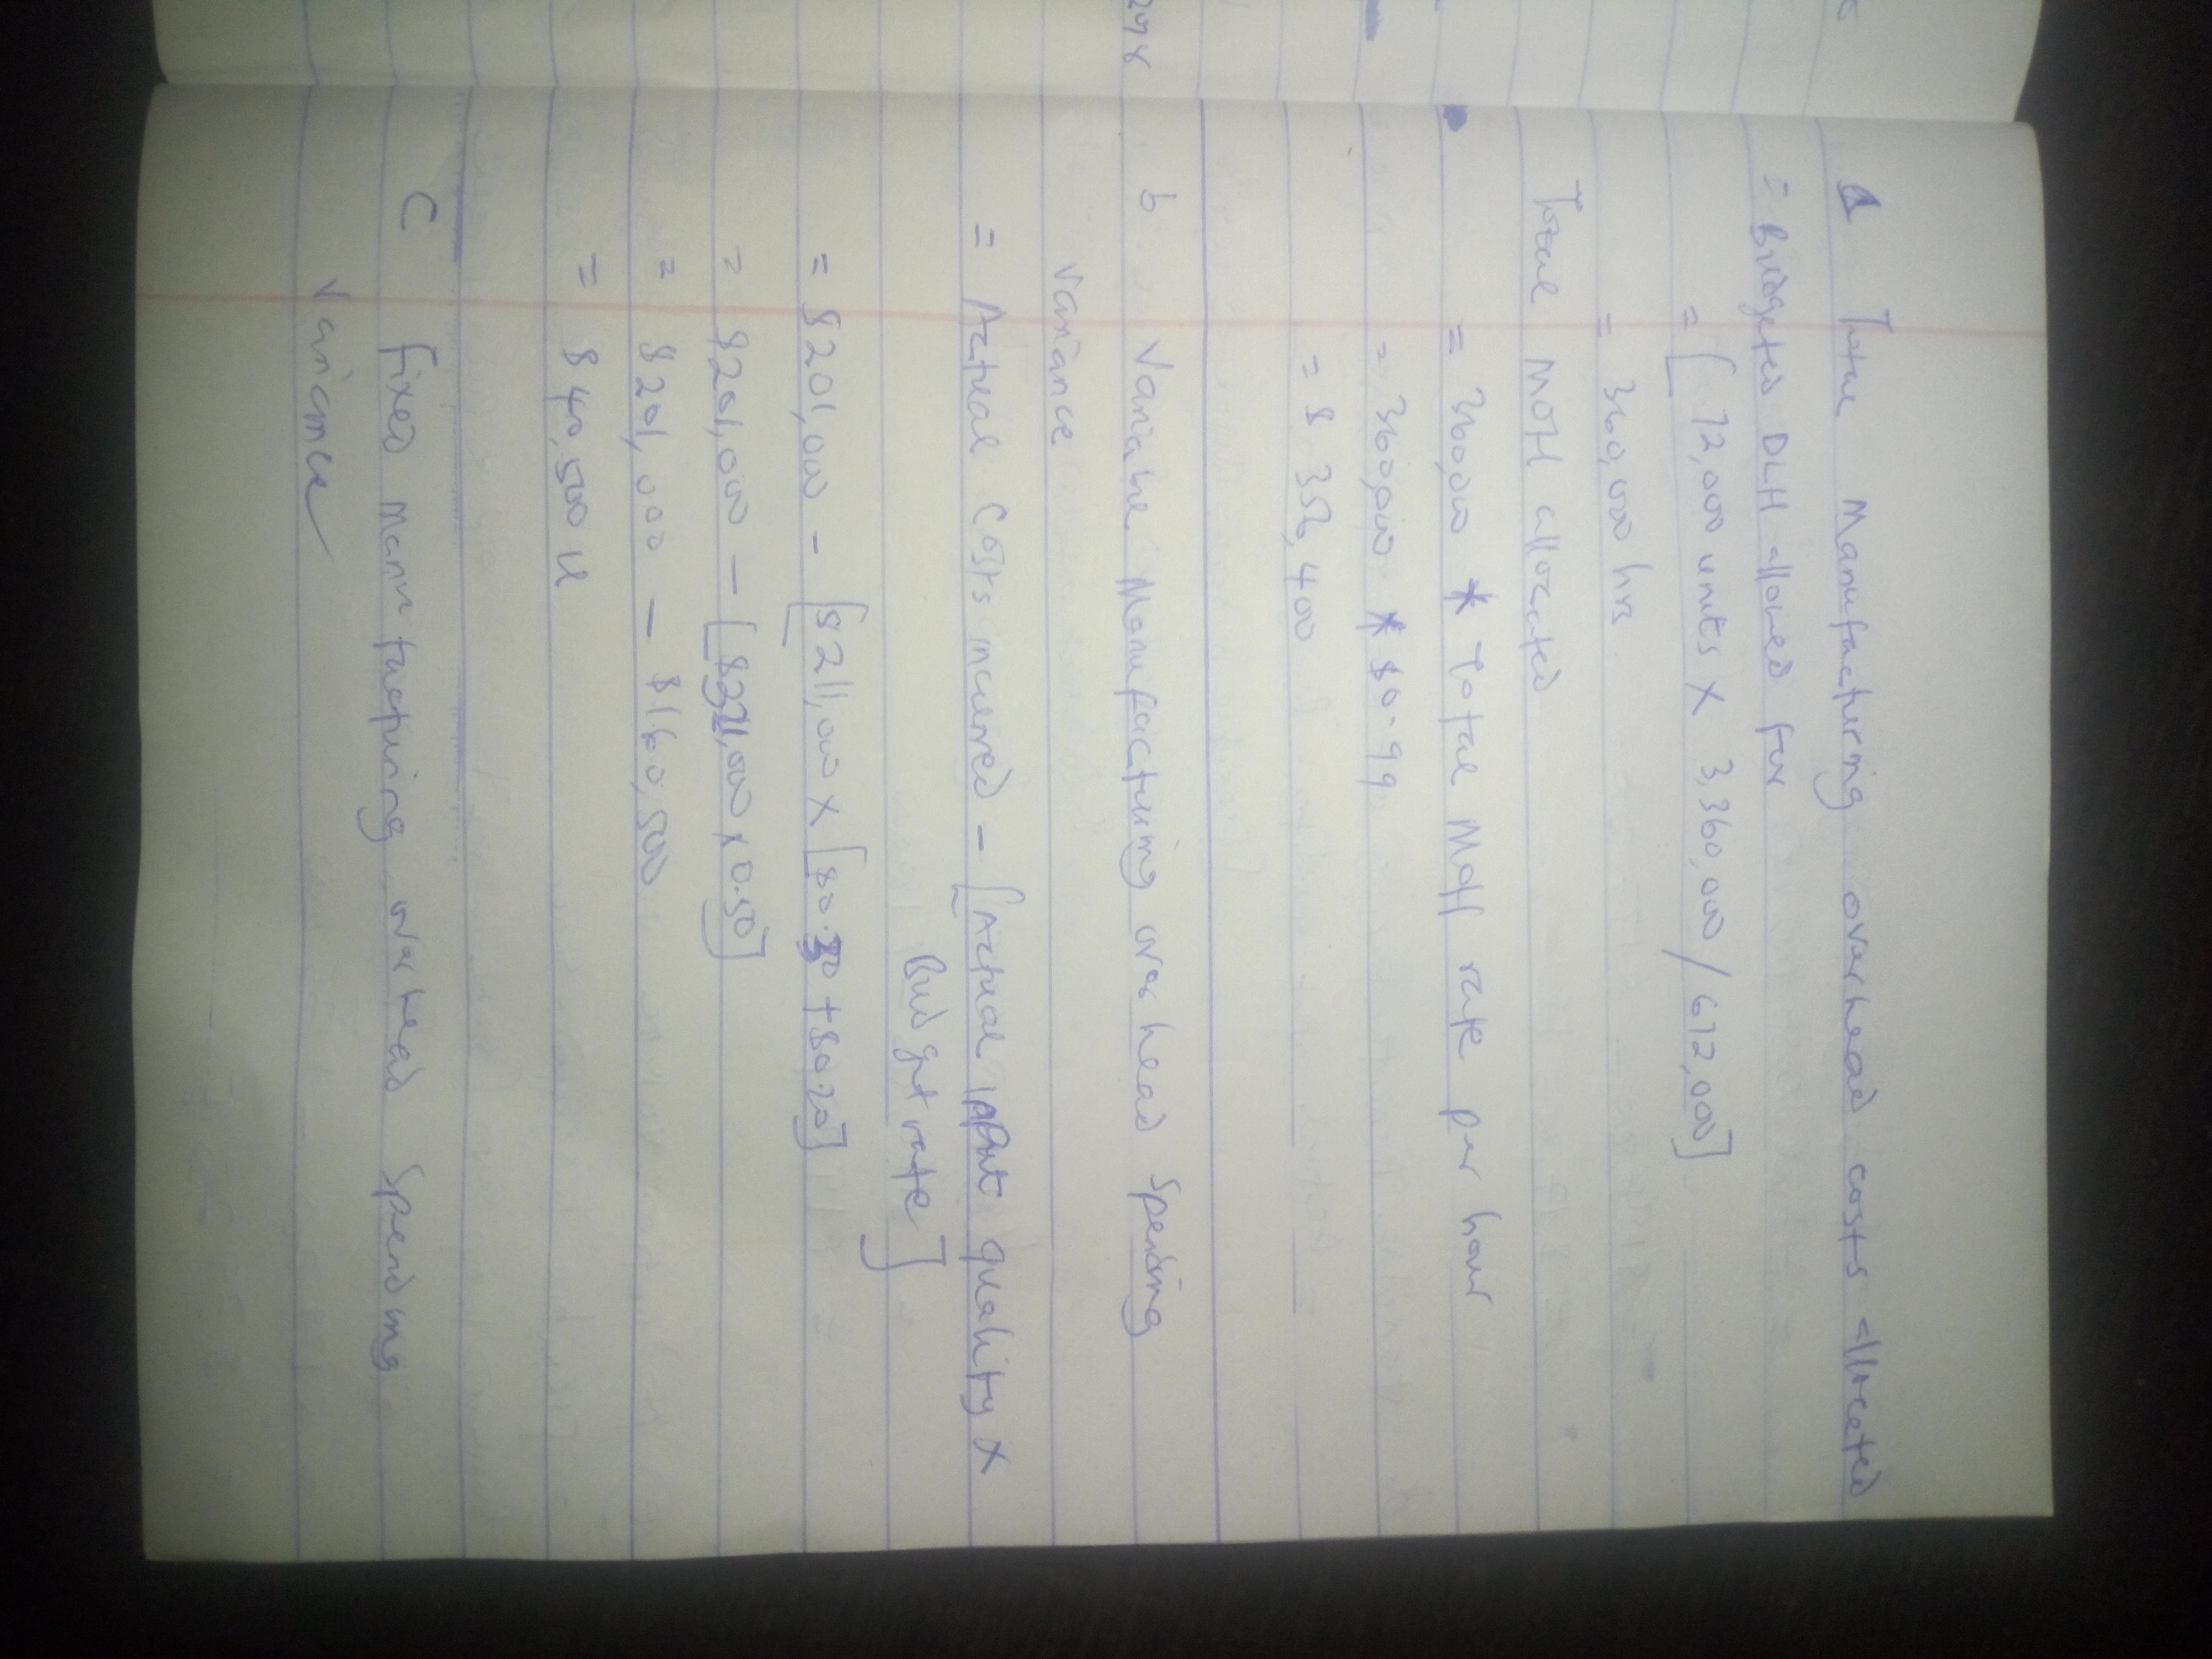 a Total Manufacturing overhead costs allocated
= Budgeted DLH allowed for
= [72,000 units x 3,360,000/672,000]
= 360,000 hrs
Total MOH allocated
= 360,000 * Total MOH rate per hour
= 360,000 * $0.99
= $ 356,400
b Variable Manufacturing over head Spending
Variance
= Actual Costs incurred - [Actual input quality x
Budget rate]
= $201,000 - [$211,000 x [$0.30 + $0.20]
= $201,000 - [$321,000 x 0.50]
= $201,000 - $160,500
= $40,500 U
C fixed manufacturing over head Spending
Variance